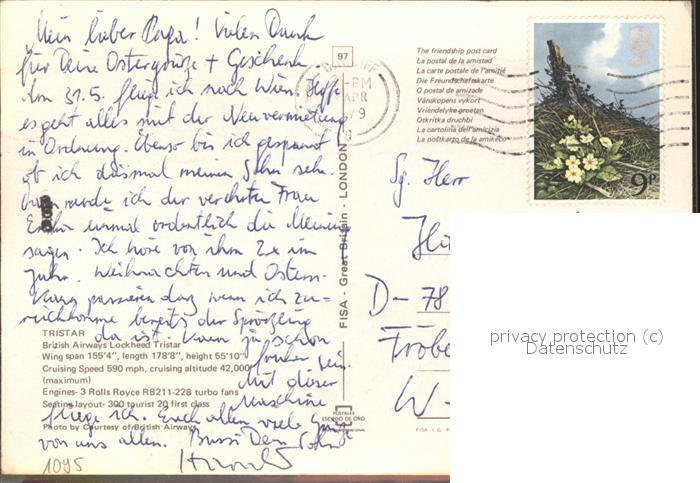 Mein lieber Papa! Vielen Dank
für Deine Ostergrüße + Geschenk
31.5. flieg ich nach Wien. Hoffe
es geht alles mit der Neuvermietung
in Ordnung. Ebenso bin ich gespannt
ob ich diesmal meinen Sohn sehe.
werde ich der verehrten Frau
einmal ordentlich die Meinung
sagen. Ich höre von ihm 2x im
Jahr. Weihnachten und Ostern.
Kann passieren daß wenn ich zu-
rückkomme bereits der Sprössling
da ist. Kann ja schon
früher sein.
Mit dieser
Maschine
fliege ich. Euch allen viele
von uns allen. Bussi Dein
1095
TRISTAR
British Airways Lockheed Tristar
Wing span 155'4", length 178'8", height 55'10"
Cruising Speed 590 mph, cruising altitude 42,000
(maximum)
Engines- 3 Rolls Royce RB211-228 turbo fans
Seating layout- 300 tourist 20 first class
Photo by Courtesy of British Airways
97
FISA - Great Britain - LONDON
POSTALES
ESCUDO DE ORO
CARDIFF
-PM
APR
The friendship post card
La postal de la amistad
La carte postale de l'amitié
Die Freundschafskarte
O postal de amizade
Vänskapens vykort
Vriendelyke groeten
Otkritka druchbi
La cartolina dell'amicizia
La postkarto de la amikeco
9P
Sg. Herr
D- 78
W-
FISA - I. G. -
privacy protection (c)
Datenschutz